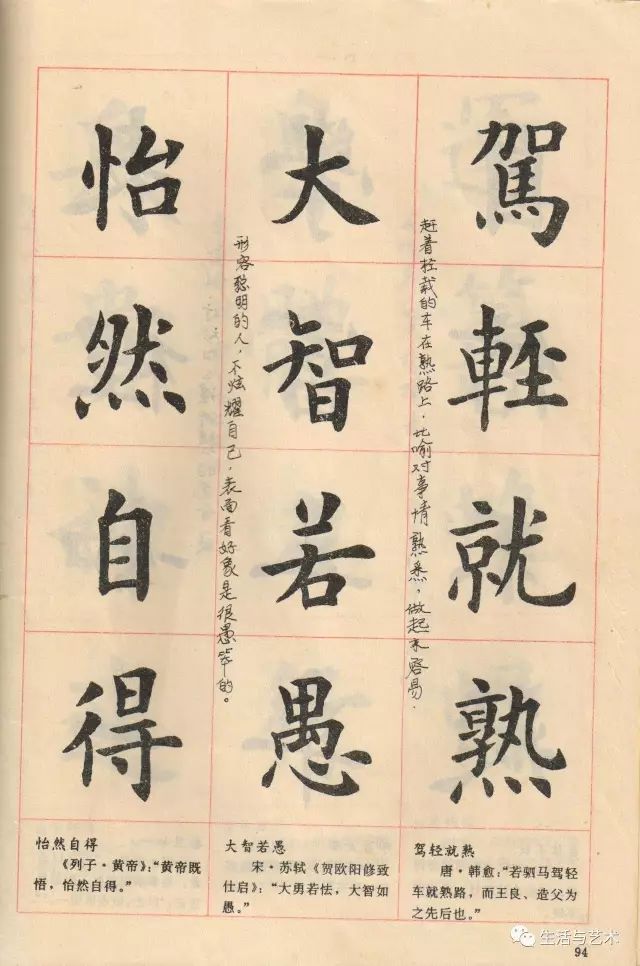 駕輕就熟
赶着轻载的车在熟路上，比喻对事情熟悉，做起来容易．
大智若愚
形容聪明的人，不炫耀自己，表面看好象是很愚笨的。
怡然自得
怡然自得
《列子·黄帝》：“黄帝既
悟，怡然自得。”
大智若愚
宋·苏轼《贺欧阳修致
仕启》：“大勇若怯，大智如
愚。”
驾轻就熟
唐·韩愈：“若驷马驾轻
车就熟路，而王良、造父为
之先后也。”
生活与艺术
94